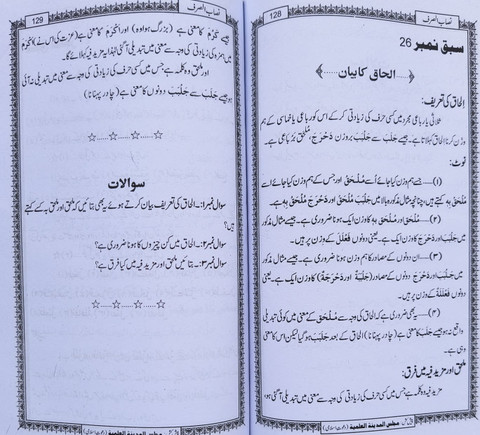 128 نصاب الصرف
سبق نمبر 26
﴿......الحاق کا بیان......﴾
الحاق کی تعریف:
ثلاثی یا رباعی مجرد میں کسی حرف کی زیادتی کر کے اس کو رباعی یا خماسی کے ہم
وزن کرنا الحاق کہلاتا ہے۔ جیسے جَلَبَ سے جَلْبَبَ بروزن دَحْرَجَ، ملحق برباعی ہے۔
نوٹ:
(۱)......جسے ہم وزن کیا جائے اُسے مُلْحَق اور جس کے ہم وزن کیا جائے اسے
مُلْحَق بِهٖ کہتے ہیں، چنانچہ مثال مذکور بالا میں جَلْبَبَ مُلْحَق اور دَحْرَجَ مُلْحَق بِهٖ ہے۔
(۲)......مُلْحَق اور مُلْحَق بِهٖ کا وزن ایک ہونا ضروری ہے۔ جیسے مثال مذکور
میں جَلْبَبَ اور دَحْرَجَ کا وزن ایک ہے۔ یعنی دونوں فَعْلَلَ کے وزن پر ہیں۔
(۳)......ان دونوں کے مصادر کا ہم وزن ہونا بھی ضروری ہے۔ جیسے مثال مذکور
میں جَلْبَبَ اور دَحْرَجَ دونوں کے مصادر (جَلْبَبَةٌ اور دَحْرَجَةٌ) کا وزن ایک ہے۔ یعنی
دونوں فَعْلَلَةٌ کے وزن پر ہیں۔
(۴)......یہ بھی ضروری ہے کہ الحاق کی وجہ سے مُلْحَق کے معنی میں کوئی تبدیلی
واقع نہ ہو جیسے جَلَبَ کا معنی ہے (چادر پہنانا) الحاق کے بعد جَلْبَبَ ہو گیا لیکن اس کا معنی
وہی ہے۔
ملحق اور مزید فیہ میں فرق:
مزید فیہ وہ کلمہ ہے جس میں کسی حرف کی زیادتی کی وجہ سے معنی میں تبدیلی آ گئی ہو،
مجلس المدینۃ العلمیۃ (دعوت اسلامی)
129 نصاب الصرف
جیسے كَرُمَ کا معنی ہے (بزرگ ہوا وہ) اور اَكْرَمَ کا معنی ہے (عزت کی اس نے) اَكْرَمَ
میں ہمزہ کی زیادتی کی وجہ سے معنی میں تبدیلی آ گئی لہٰذا یہ مزید فیہ کہلائے گا۔
اور ملحق وہ کلمہ ہے جس میں کسی حرف کی زیادتی کی وجہ سے معنی میں تبدیلی نہ آئی
ہو جیسے جَلَبَ سے جَلْبَبَ دونوں کا معنی ہے (چادر پہنانا)۔
☆......☆......☆......☆
سوالات
سوال نمبر۱:۔ الحاق کی تعریف بیان کرتے ہوئے یہ بھی بتائیں کہ ملحق اور ملحق بہ کسے کہتے
ہیں؟
سوال نمبر۲:۔ الحاق میں کن چیزوں کا ہونا ضروری ہے؟
سوال نمبر۳:۔ بتائیں ملحق اور مزید فیہ میں کیا فرق ہے؟
☆......☆......☆......☆
مجلس المدینۃ العلمیۃ (دعوت اسلامی)